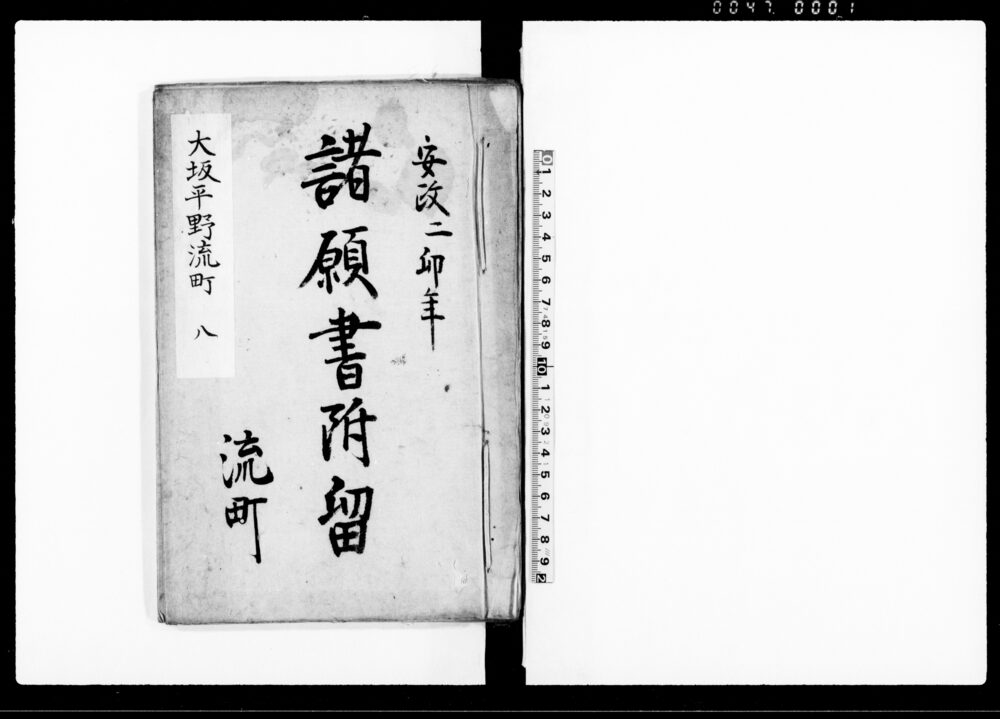 0047 0001
安政二卯年
諸願書附留
流町
大坂平野流町 八
0 1 2 3 4 5 6 7 8 9 10 1 2 3 4 5 6 7 8 9 2